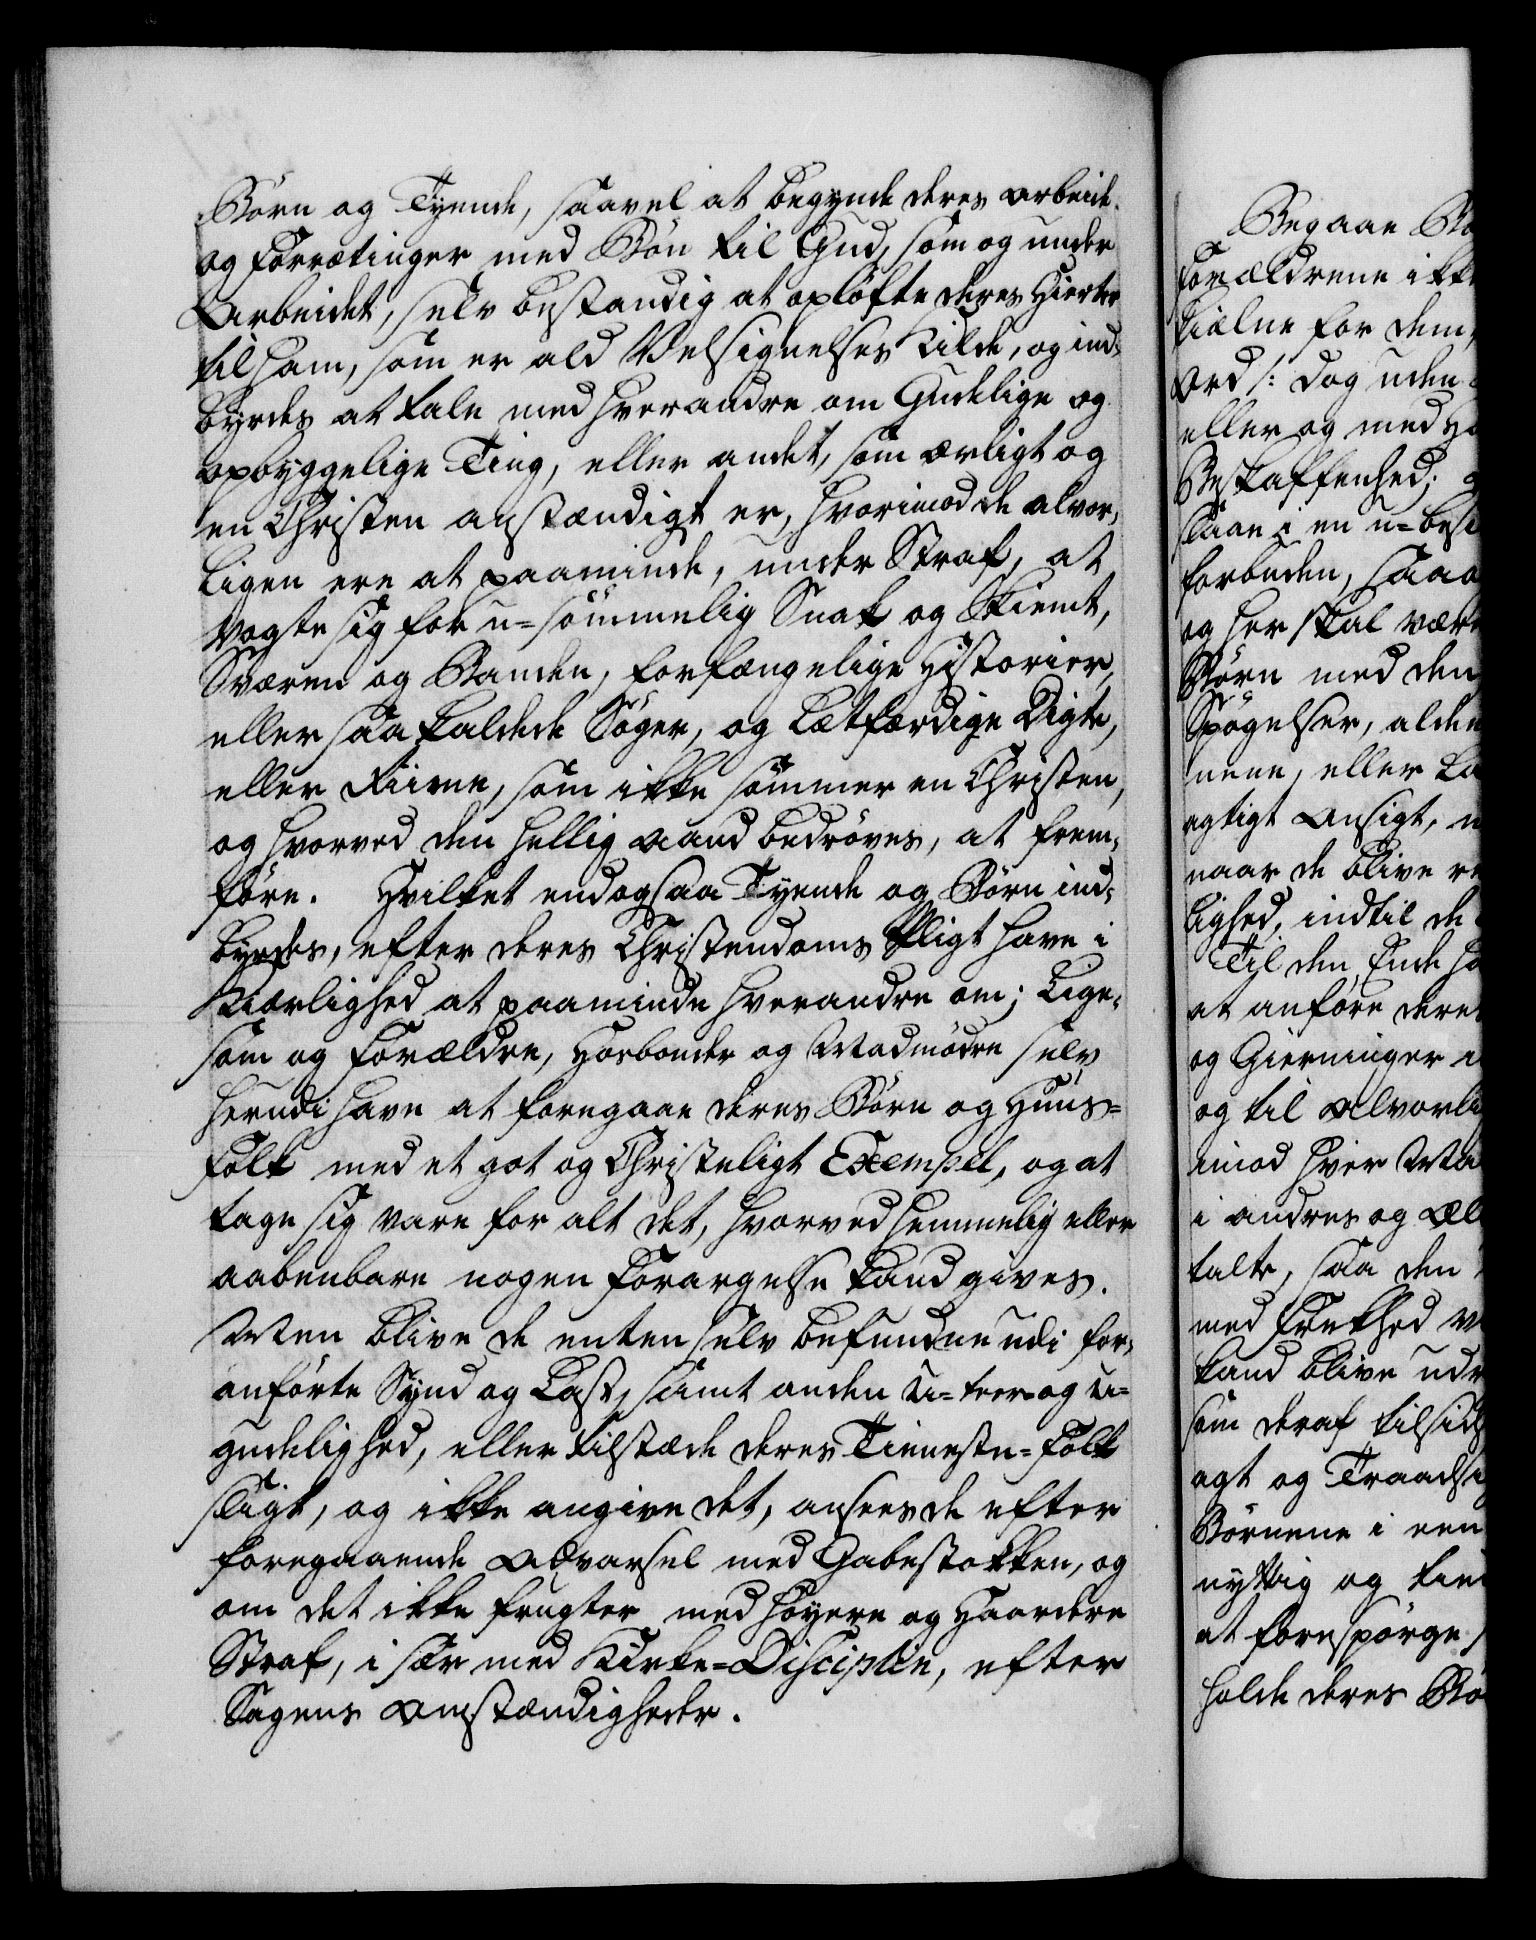 Børn og Tyende, saavel at begynde deres arbeide
og Forrætinger med Bøn til Gud, som og under
Arbeidet, selv bestandig at opløfte deres Hierter
til ham, som er ald Velsignelses Kilde, og ind-
byrdes at tale med hverandre om Gudelige og
opbyggelige Ting, eller andet, som ærligt og
en Christen anstændigt er, hvorimod de alvor-
ligen ere at paaminde, under Straf, at
vogte sig for u-sømmelig Snak og Skiemt,
Sværen og Banden, forfængelige Historier,
eller saa kaldede Søger, og Letfærdige Digte,
eller Riimer, som ikke sømmer en Christen,
og hvorved den hellig Aand bedrøves, at frem-
føre. Hvilket endogsaa Tyende og Børn ind-
byrdes, efter deres Christendoms Pligt have i
Kierlighed at paaminde hverandre om; Lige-
som og Forældre, Hosbonder og Madmødre selv
herudi have at foregaae deres Børn og Huus-
Folk med et got og Christeligt Exempel, og at
tage sig vare for alt det, hvorved hemmelig eller
aabenbare nogen Forargelse kand gives.
Men blive de enten selv befundne udi for-
anførte Synd og Last, samt anden U-teer- og U-
gudelighed, eller tilstæde deres Tienneste-Folk
sligt, og ikke angive det, ansees de efter
foregaaende Advarsel med Gabestokken, og
om det ikke frugter med høyere og Haardere
Straf, i sær med Kirke-Disciplin, efter
Sagens Omstændigheder.
Begaae Bø
Forældrene ikke
skiælne for dem,
Ord /: dog uden
eller og med
Beskaffenhed;
slaae i en u-besi
forbuden, saa
og her skal være
Børn med den
Spøgelser, alden
mene, eller La
agtigt Ansigt,
naar de blive re
lighed, indtil de
Til den Ende ha
at anføre deres
og Gierninger i
og til alvorli
imod hver Ma
i andres og Æl
talte, saa den
med Frekhed
kand blive udr
som deraf tilsids
agt og Traadsi
Børnene i een
nyttig og tien
at forespørge
holde deres Bø